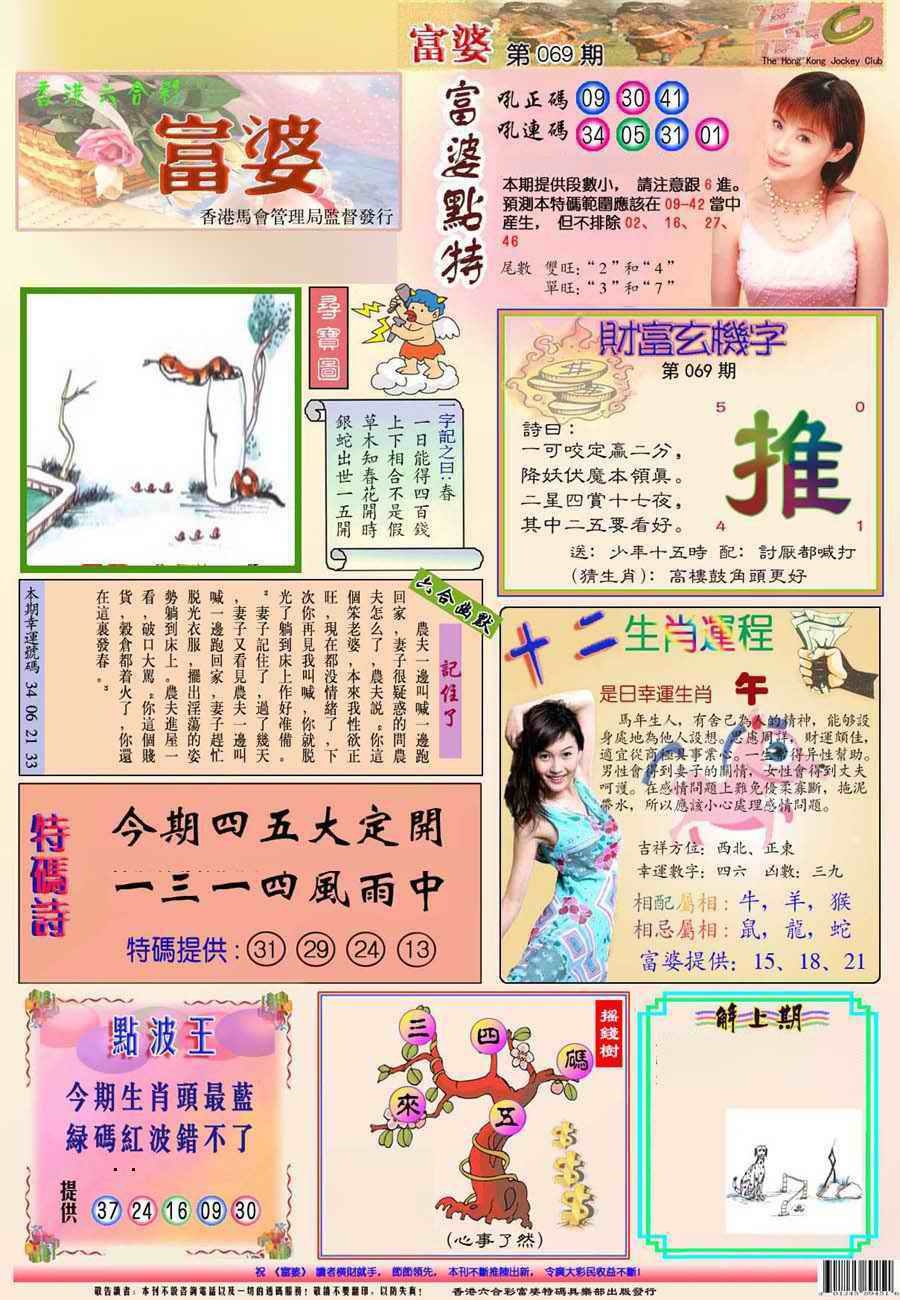 富婆 第 069 期
The Hong Kong Jockey Club
香港六合彩
富婆
香港馬會管理局監督發行
富婆點特
吼正碼 09 30 41
吼連碼 34 05 31 01
本期提供段數小， 請注意跟 6 進。
預測本特碼範圍應該在 09-42 當中
產生， 但不排除 02、 16、 27、
46
尾數 雙旺：“2”和“4”
單旺：“3”和“7”
尋寶圖
一字記之曰：春
一日能得四百錢
上下相合不是假
草木知春花開時
銀蛇出世一五開
財富玄機字
第 069 期
詩曰：
一可咬定贏二分，
降妖伏魔本領眞。
二星四賞十七夜，
其中二五要看好。
5 0
推
4 1
送： 少年十五時 配： 討厭都喊打
（猜生肖）：高樓鼓角頭更好
六合幽默
記住了
農夫一邊叫喊一邊跑
回家，妻子很疑惑的問農
夫怎么了，農夫説。你這
個笨老婆，本來我性欲正
旺，現在都没情緒了，下
次你再見我叫喊，你就脱
光了躺到床上作好准備。
“妻子記住了，過了幾天
，妻子又看見農夫一邊叫
喊一邊跑回家，妻子趕忙
脱光衣服，擺出淫蕩的姿
勢躺到床上。農夫進屋一
看，破口大罵“你這個賤
貨，穀倉都着火了，你還
在這裏發春。”
本期幸運號碼 34 06 21 33
十二生肖運程
是日幸運生肖 午
馬年生人，有舍己為人的精神，能够設
身處地為他人設想。思慮周詳，財運頗佳，
適宜從商極具事業心。一生常得异性幫助。
男性會得到妻子的關情，女性會得到丈夫
呵護。在感情問題上難免優柔寡斷，拖泥
帶水，所以應該小心處理感情問題。
吉祥方位：西北、正東
幸運數字：四六 凶數：三九
相配屬相：牛，羊，猴
相忌屬相：鼠，龍，蛇
富婆提供：15、18、21
特碼詩
今期四五大定開
一三一四風雨中
特碼提供：31 29 24 13
點波王
今期生肖頭最藍
緑碼紅波錯不了
提供 37 24 16 09 30
搖錢樹
三 四 碼
來 五
（心事了然）
解上期
祝 《富婆》 讀者橫財就手， 節節領先， 本刊不斷推陳出新， 令廣大彩民收益不斷！
敬告讀者：本刊不設咨詢電話以及一切的透碼服務！敬請不要翻印，以防失真！ 香港六合彩富婆特碼俱樂部出版發行